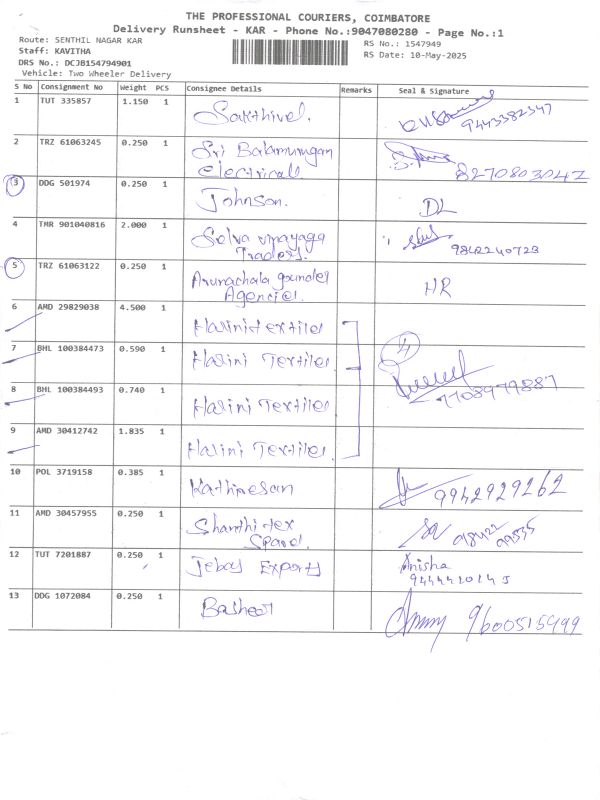 THE PROFESSIONAL COURIERS, COIMBATORE
Delivery Runsheet - KAR - Phone No.:9047080280 - Page No.:1
Route: SENTHIL NAGAR KAR
RS No.: 1547949
Staff: KAVITHA
RS Date: 10-May-2025
DRS No.: DCJB154794901
Vehicle: Two Wheeler Delivery
S No Consignment No Weight PCS Consignee Details Remarks Seal & Signature
1 TUT 335857 1.150 1 Sakthivel.
9443382347
2 TRZ 61063245 0.250 1 Sri Balamurugan
Electricall
8270803042
3 DDG 501974 0.250 1 Johnson. DL
4 TMR 901040816 2.000 1 Selva vinayaga
Traders.
9842240723
5 TRZ 61063122 0.250 1 Arunachala gounder
Agencies. HR
6 AMD 29829038 4.500 1 Harini textiles
7 BHL 100384473 0.590 1 Harini Textiles 4
8 BHL 100384493 0.740 1 Harini Textiles 7708979887
9 AMD 30412742 1.835 1 Harini Textiles
10 POL 3719158 0.385 1 Kathiresan 9942929262
11 AMD 30457955 0.250 1 Shanthi tex
12 TUT 7201887 0.250 1 Jebas Exports Anisha
13 DDG 1072084 0.250 1 Basheer 9600515499